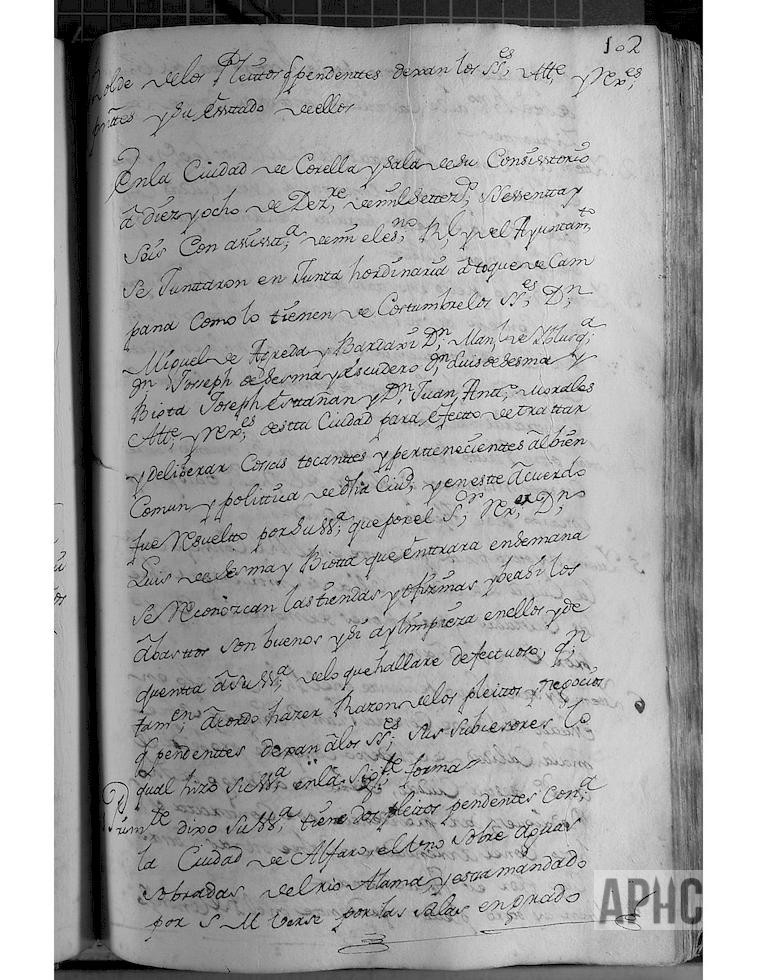 102
Rolde de los Pleittos q̄ pendenttes dexan los SS.es Alc.e y Rex.es
pnttes y Su Esttado de ellos
En la Ciudad de Corella y Sala de Su Consisttorio
â diez y ocho de Dez.re de mil Settez.s Sessentta y
Seis Con assistt.a de mi el es.no R.l y del Ayuntam.to
Se Junttaron en Juntta hordinaria â toque de Cam
pana Como lo tienen de Costumbre los SS.es D.n
Miguel de Agreda y D.n Man.l de
D.n Joseph de Sesma y Escudero D.n Luis de Sesma y
Biota Joseph Esttañan y D.n Juan Antt.o Morales
Alc.e y Rex.es destta Ciudad para efecto de trattar
y deliberar Cosas tocanttes y perttenecienttes âl bien
Comun y polittica de dha Ciud. y en este âcuerdo
fue Resuelto por Su SS.a que por el S.or Rex.or D.n
Luis de Sesma y Biotta que enttrara en Semana
Se Reconozcan las tiendas y ofizinas y bea Si los
âbasttos Son buenos y Si ay limpieza en ellos y de
quentta â Su SS.a de lo que hallare defectuoso, q.n
tam.en âcordo hazer Razon de los pleittos y negocios
q̄ pendenttes dexan â los SS.es Sus Subcesores Lo
qual hizo Su SS.a en la Sig.te forma
Prim.te dixo Su SS.a tiene dos pleittos pendentes Con.a
la Ciudad de Alfaro, el Uno Sobre Aguas
Sobradas del rio Alama, y esta mandado
por S M Verse por las Salas en grado
APHC